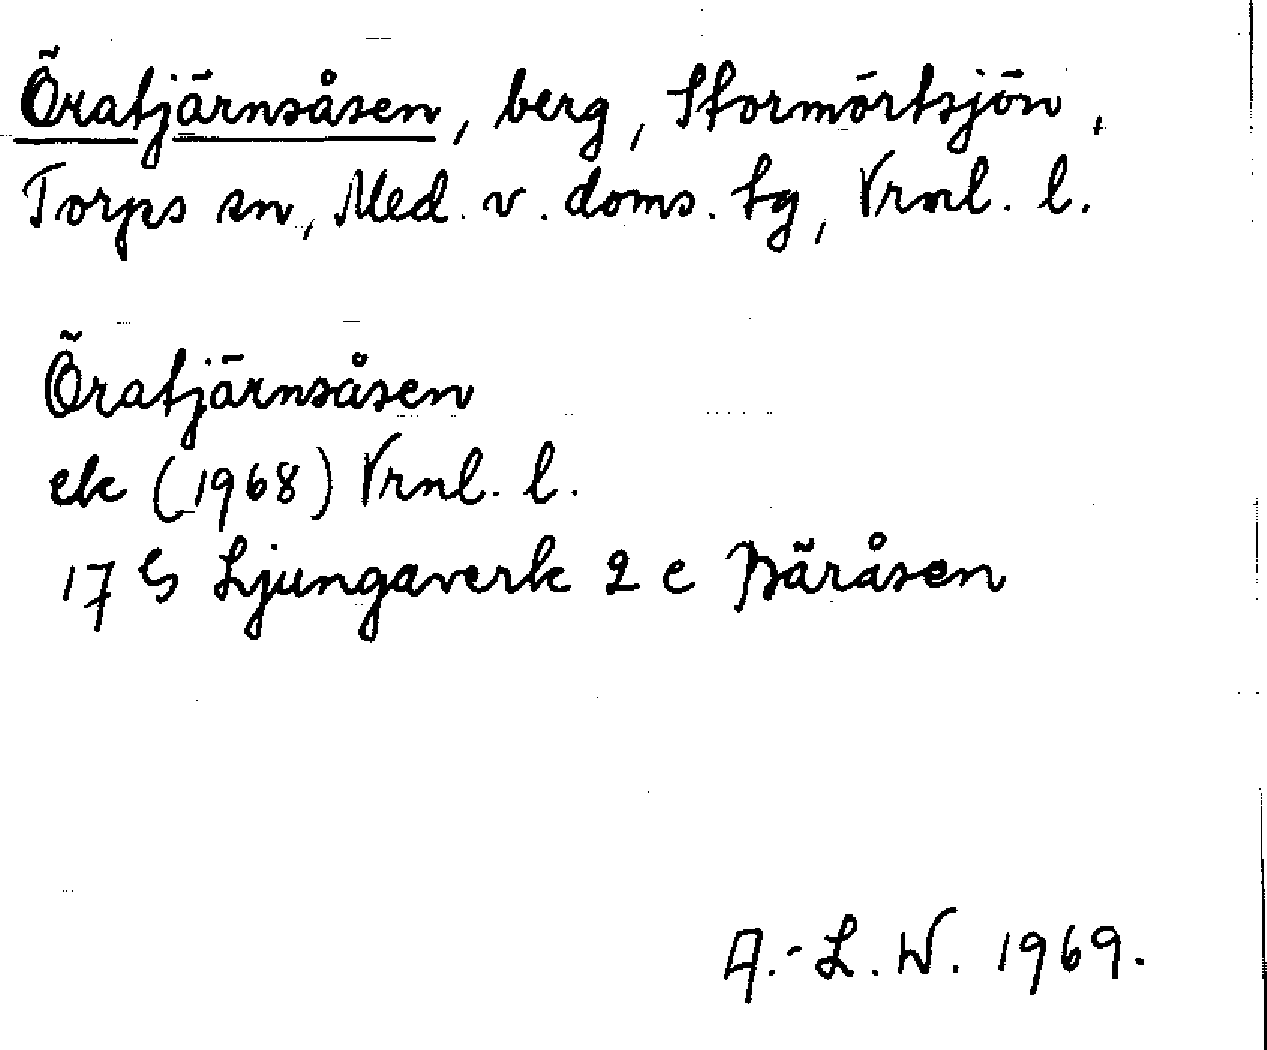 Öratjärnsåsen, berg, Stormörtsjön,
Torps sn, Med. v. doms. tg, Vrnl. l.
Öratjärnsåsen
ek (1968) Vrnl. l.
17 G Ljungaverk 2 c Bäråsen
A.-L. W. 1969.